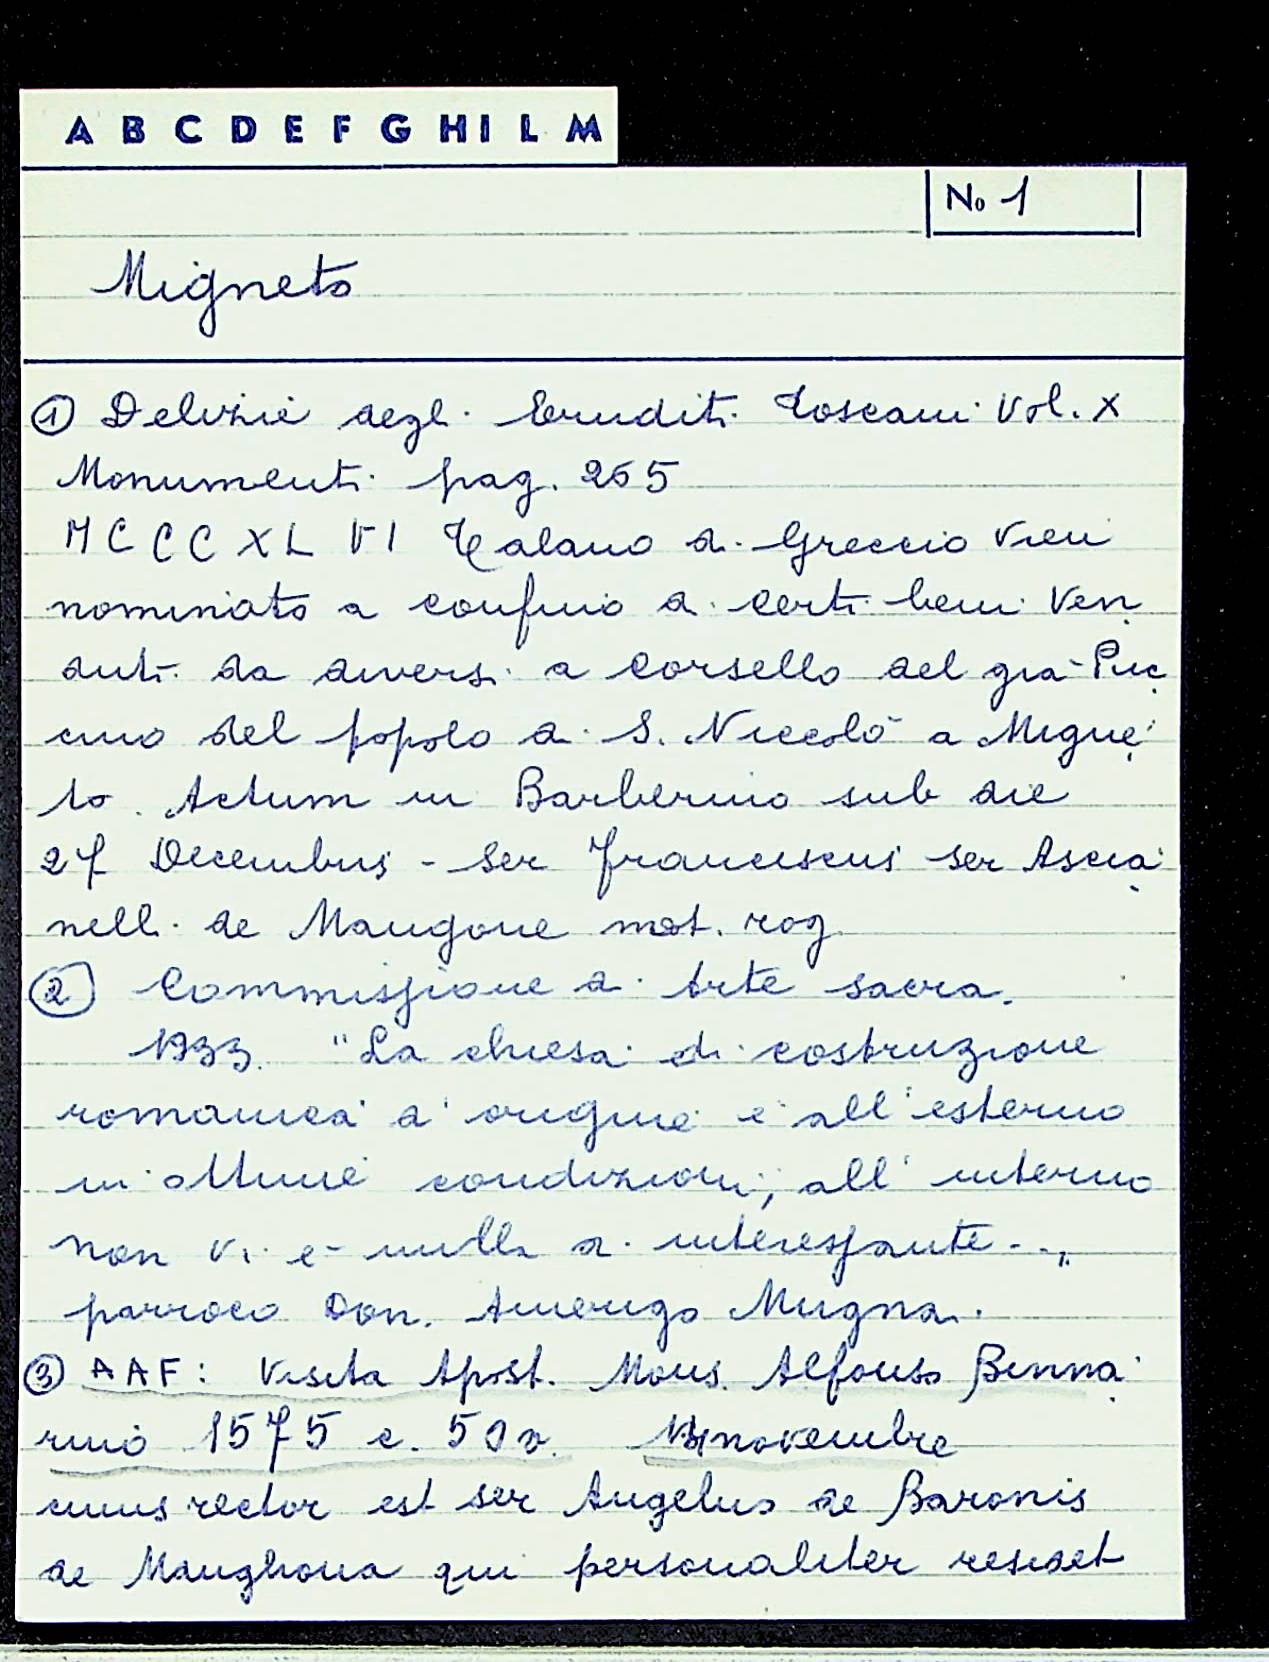 A B C D E F G H I L M
No 1
Migneto
① Delizie degli Eruditi toscani Vol. X
Monumenti pag. 265
MCCCXLVI Catalano di Greccio vien
nominato a confino di certi beni ven
duti da diversi a Corsello del già Puc
cino del popolo di S. Niccolò a Migne
to. Actum in Barberino sub die
27 Decembris - Ser Franciscus ser Ascia
nelli de Mangone not. rog.
② Commissione di Arte sacra.
1933. "La chiesa di costruzione
romanica d'origine è all'esterno
in ottime condizioni, all'interno
non vi è nulla di interessante..,,
parroco Don. Amerigo Mugnai.
③ AAF: Visita Apost. Mons. Alfonso Binna
rino 1575 c. 50v. novembre
cuius rector est ser Angelus de Baronis
de Manghona qui personaliter residet